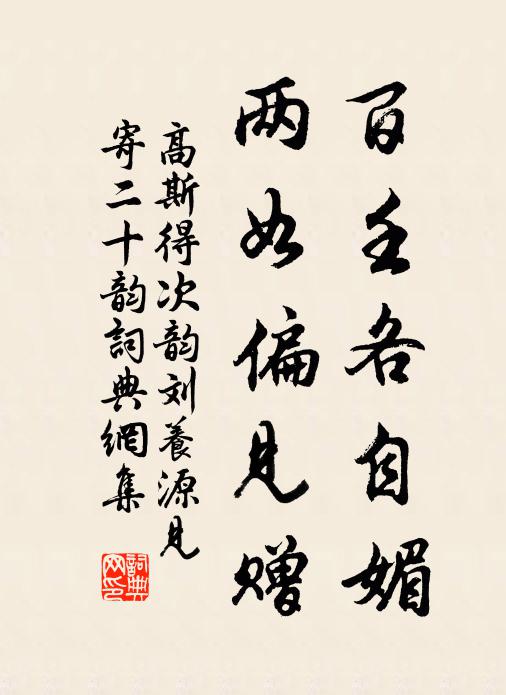 百壬各自媚
两如偏见赠
高斯得次韵刘養源见
寄二十韵詞典網集
詞典网印